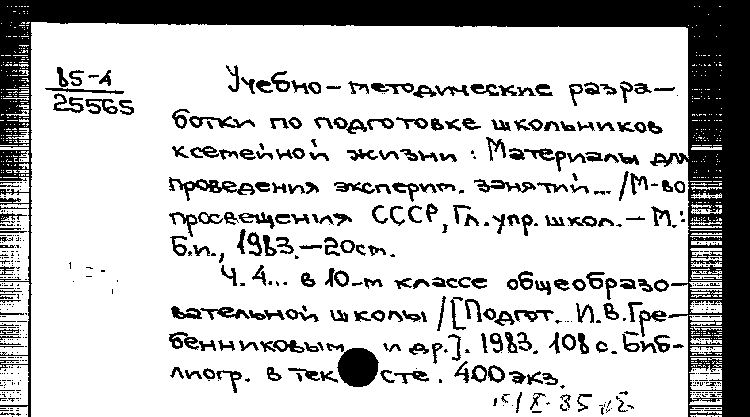 85-4
25565
Учебно-методические разра-
ботки по подготовке школьников
к семейной жизни : Материалы для
проведения эксперим. занятий... /М-во
просвещения СССР, Гл. упр. школ. — М.:
Б.и., 1983. — 20 см.
Ч. 4... в 10-м классе общеобразо-
вательной школы /[Подгот. И.В. Гре-
бенниковым и др.]. 1983. 108 с. Биб-
лиогр. в тексте. 400 экз.